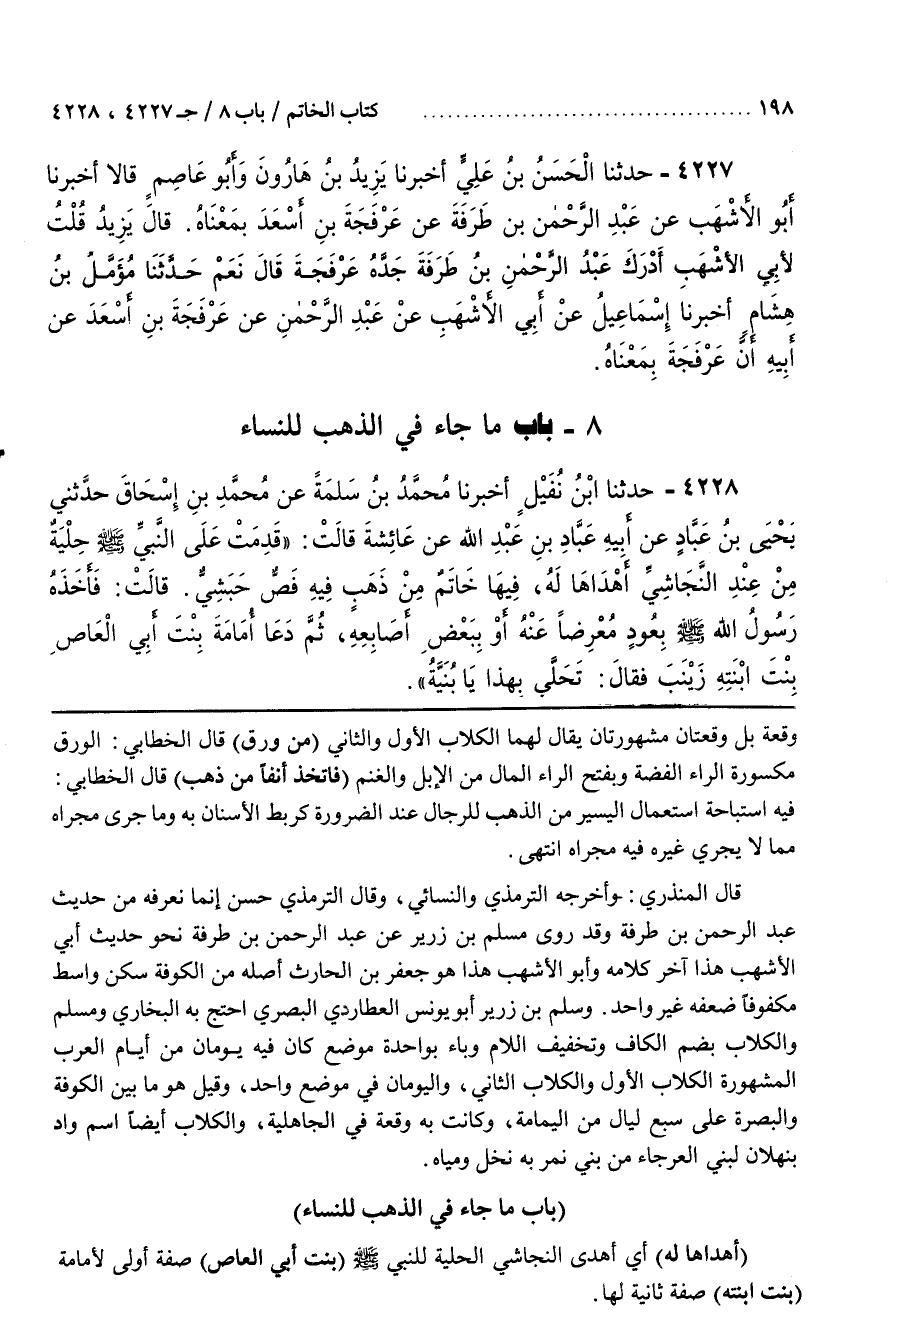 ١٩٨ ........................................ كتاب الخاتم / باب ٨ / حـ ٤٢٢٧ ، ٤٢٢٨
٤٢٢٧ - حدثنا الْحَسَنُ بنُ عَلِيٍّ أخبرنا يَزِيدُ بنُ هَارُونَ وَأَبُو عَاصِمٍ قالا أخبرنا
أَبُو الأَشْهَبِ عن عَبْدِ الرَّحْمٰنِ بن طَرَفَةَ عن عَرْفَجَةَ بنِ أَسْعَدَ بمَعْنَاهُ. قالَ يَزِيدُ قُلْتُ
لأبي الأشْهَبِ أَدْرَكَ عَبْدُ الرَّحْمٰنِ بنُ طَرَفَةَ جَدَّهُ عَرْفَجَةَ قَالَ نَعَمْ حَدَّثَنَا مُؤَمَّلُ بنُ
هِشَامٍ أخبرنا إسْمَاعِيلُ عنْ أَبي الأَشْهَبِ عنْ عَبْدِ الرَّحْمٰنِ عن عَرْفَجَةَ بنِ أَسْعَدَ عن
أَبِيهِ أَنَّ عَرْفَجَةَ بِمَعْنَاهُ.
٨ - باب ما جاء في الذهب للنساء
٤٢٢٨ - حدثنا ابْنُ نُفَيْلٍ أخبرنا مُحمَّدُ بنُ سَلمَةً عن مُحمَّدِ بنِ إسْحَاقَ حدَّثني
يَحْيَى بنُ عَبَّادٍ عن أَبِيهِ عَبَّادِ بنِ عَبْدِ الله عن عَائِشةَ قالَتْ: «قَدِمَتْ عَلَى النَّبيِّ ﷺ حِلْيَةٌ
مِنْ عِنْدِ النَّجَاشِيِّ أَهْدَاهَا لَهُ، فِيهَا خَاتَمٌ مِنْ ذَهَبٍ فِيهِ فَصٌّ حَبَشِيٌّ. قالَتْ: فَأَخَذَهُ
رَسُولُ الله ﷺ بِعُودٍ مُعْرِضاً عَنْهُ أَوْ بِبَعْضِ أَصَابِعِهِ، ثُمَّ دَعَا أُمَامَةَ بِنْتَ أَبِي الْعَاصِ
بِنْتَ ابْنَتِهِ زَيْنَبَ فقالَ: تَحَلَّي بِهذا يَا بُنَيَّةُ».
وقعة بل وقعتان مشهورتان يقال لهما الكلاب الأول والثاني (من ورق) قال الخطابي: الورق
مكسورة الراء الفضة وبفتح الراء المال من الإبل والغنم (فاتخذ أنفاً من ذهب) قال الخطابي:
فيه استباحة استعمال اليسير من الذهب للرجال عند الضرورة كربط الأسنان به وما جرى مجراه
مما لا يجري غيره فيه مجراه انتهى.
قال المنذري: وأخرجه الترمذي والنسائي، وقال الترمذي حسن إنما نعرفه من حديث
عبد الرحمن بن طرفة وقد روى مسلم بن زرير عن عبد الرحمن بن طرفة نحو حديث أبي
الأشهب هذا آخر كلامه وأبو الأشهب هذا هو جعفر بن الحارث أصله من الكوفة سكن واسط
مكفوفاً ضعفه غير واحد. وسلم بن زرير أبو يونس العطاردي البصري احتج به البخاري ومسلم
والكلاب بضم الكاف وتخفيف اللام وباء بواحدة موضع كان فيه يومان من أيام العرب
المشهورة الكلاب الأول والكلاب الثاني، واليومان في موضع واحد، وقيل هو ما بين الكوفة
والبصرة على سبع ليال من اليمامة، وكانت به وقعة في الجاهلية، والكلاب أيضاً اسم واد
بنهلان لبني العرجاء من بني نمر به نخل ومياه.
(باب ما جاء في الذهب للنساء)
(أهداها له) أي أهدى النجاشي الحلية للنبي ﷺ (بنت أبي العاص) صفة أولى لأمامة
(بنت ابنته) صفة ثانية لها.